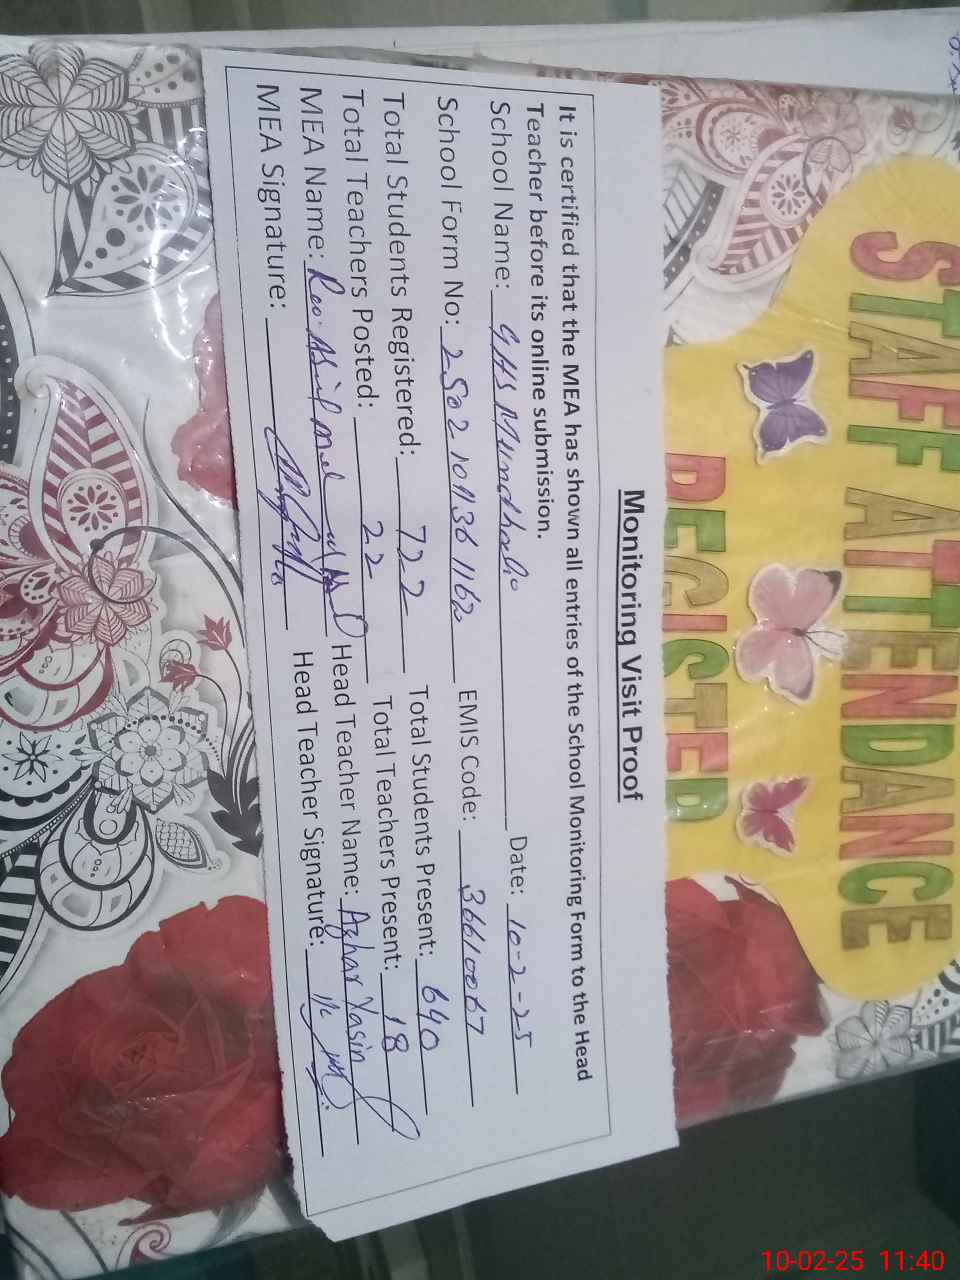 STAFF ATTENDANCE
REGISTER
Monitoring Visit Proof
It is certified that the MEA has shown all entries of the School Monitoring Form to the Head
Teacher before its online submission.
School Name: GHS Date: 10-2-25
School Form No: EMIS Code: 36610067
Total Students Registered: 722 Total Students Present: 640
Total Teachers Posted: 22 Total Teachers Present: 18
MEA Name: Head Teacher Name: Azhar Yasin
MEA Signature: Head Teacher Signature:
10-02-25 11:40